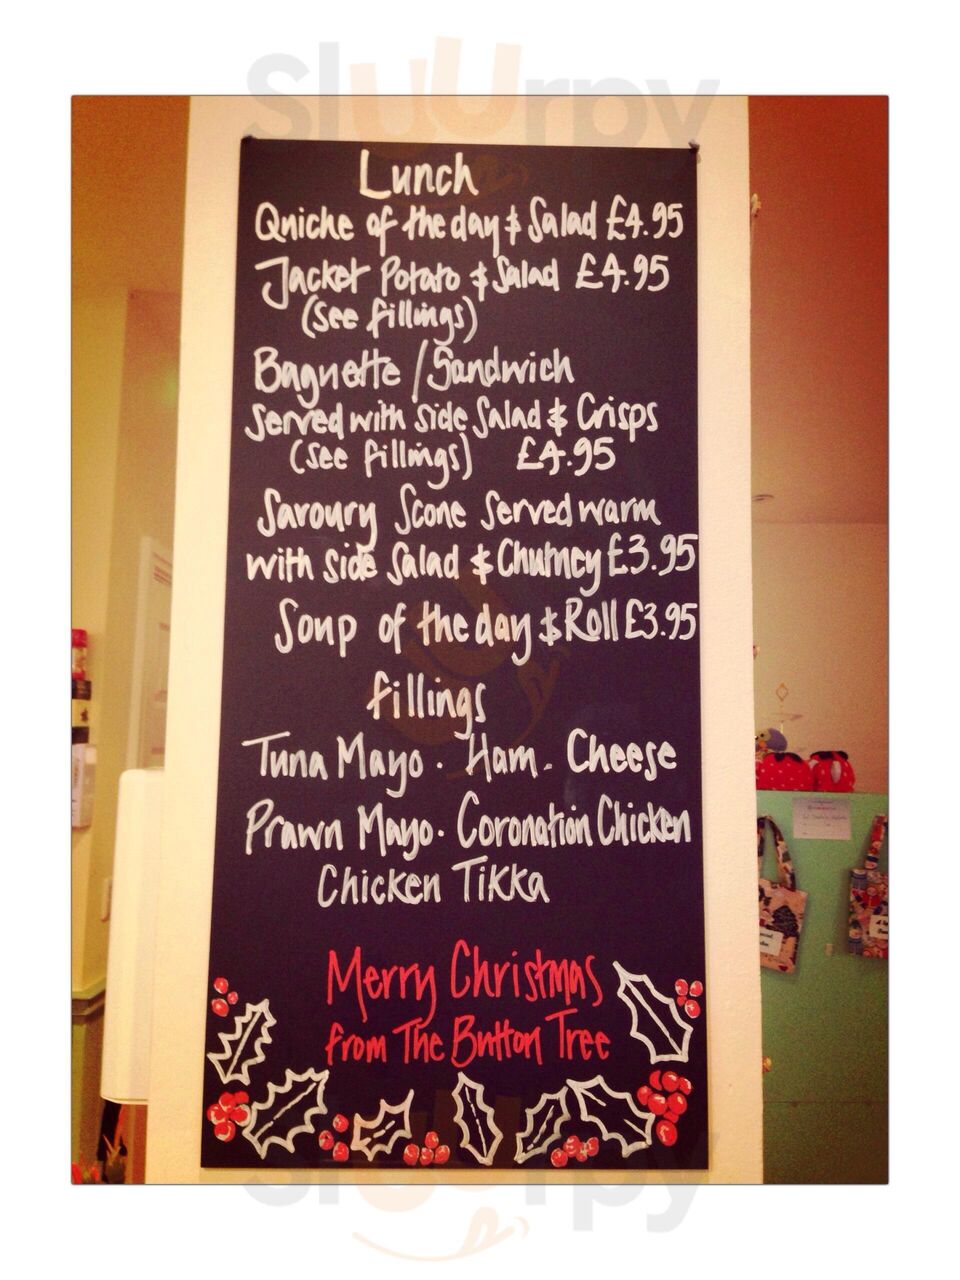 Sluurpy
Lunch
Quiche of the day & Salad £4.95
Jacket Potato & Salad £4.95
(see fillings)
Baguette / Sandwich
served with side Salad & Crisps
(see fillings) £4.95
Savoury Scone served warm
with side Salad & Chutney £3.95
Soup of the day & Roll £3.95
fillings
Tuna Mayo. Ham. Cheese
Prawn Mayo. Coronation Chicken
Chicken Tikka
Merry Christmas
from The Button Tree
Sluurpy